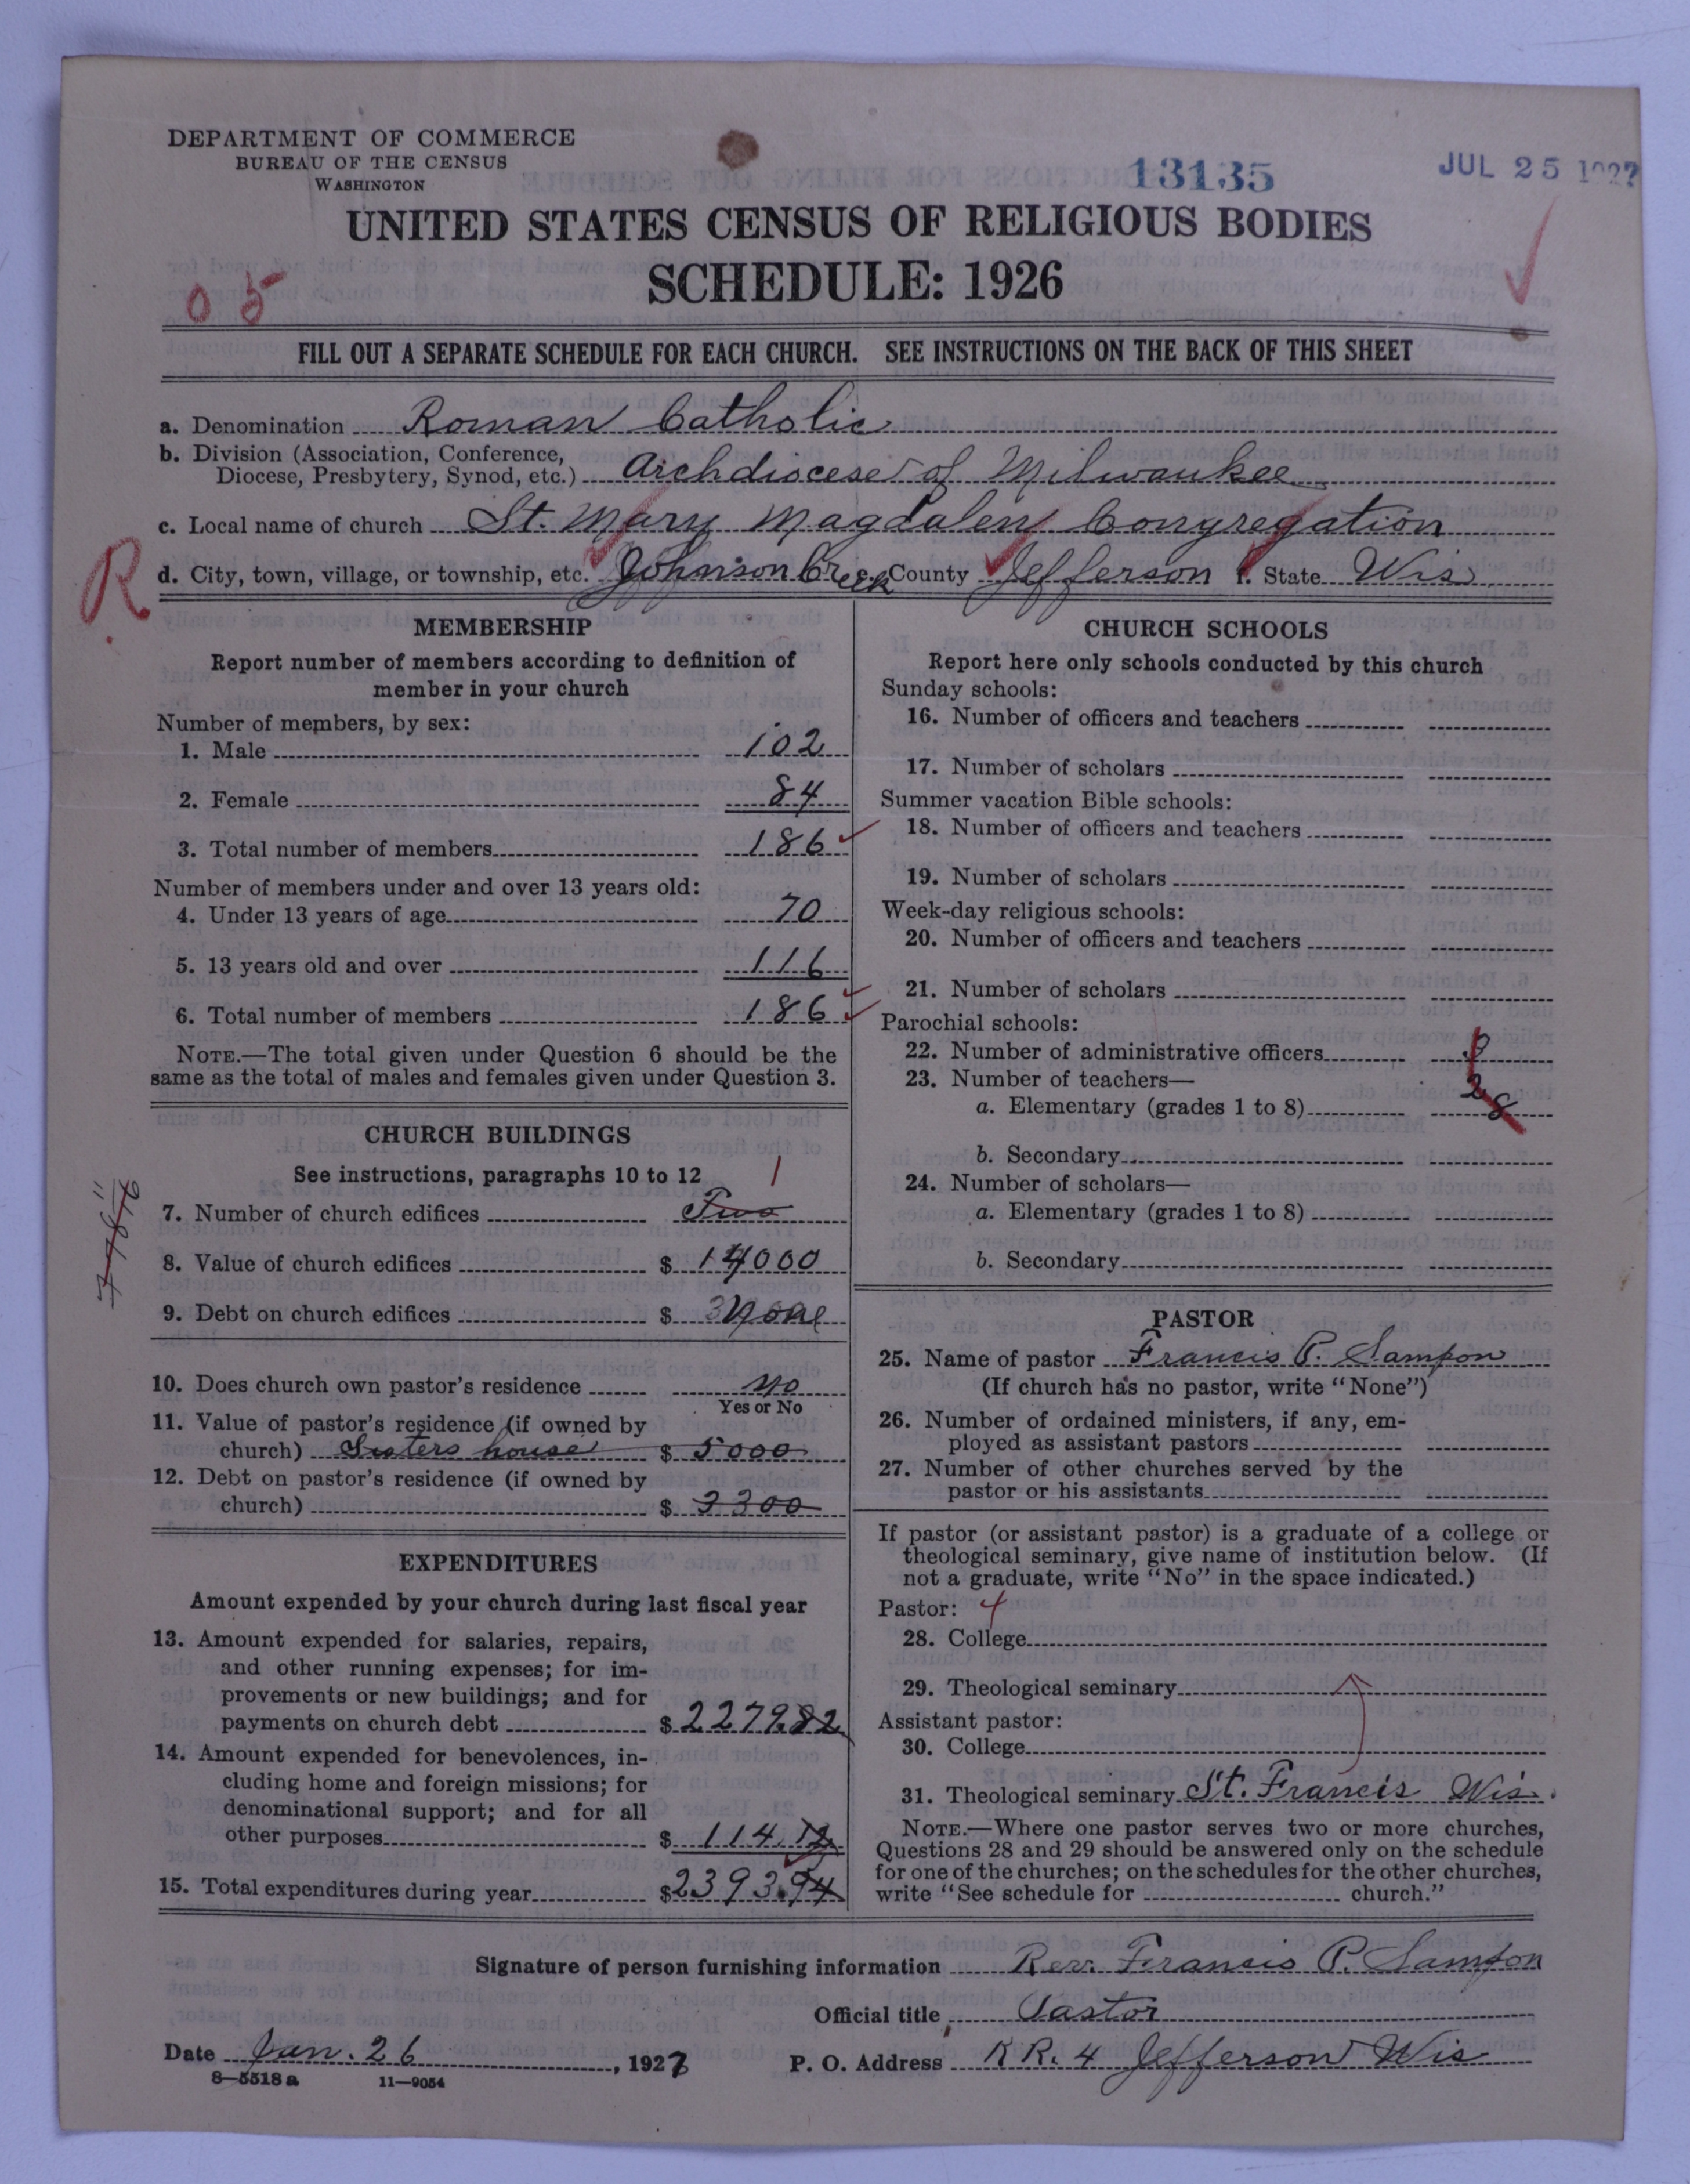 DEPARTMENT OF COMMERCE
BUREAU OF THE CENSUS
WASHINGTON
13135
JUL 25 1927
UNITED STATES CENSUS OF RELIGIOUS BODIES
SCHEDULE: 1926
05
FILL OUT A SEPARATE SCHEDULE FOR EACH CHURCH. SEE INSTRUCTIONS ON THE BACK OF THIS SHEET
a. Denomination Roman Catholic
b. Division (Association, Conference,
Diocese, Presbytery, Synod, etc.) Archdiocese of Milwaukee
c. Local name of church St. Mary Magdalen Congregation
R
d. City, town, village, or township, etc. Johnson Creek e. County Jefferson f. State Wis
MEMBERSHIP
Report number of members according to definition of
member in your church
Number of members, by sex:
1. Male 102
2. Female 84
3. Total number of members 186
Number of members under and over 13 years old:
4. Under 13 years of age 70
5. 13 years old and over 116
6. Total number of members 186
NOTE.—The total given under Question 6 should be the
same as the total of males and females given under Question 3.
CHURCH BUILDINGS
See instructions, paragraphs 10 to 12
1
7. Number of church edifices Two
8. Value of church edifices $ 14000
9. Debt on church edifices $ None
10. Does church own pastor's residence no
Yes or No
11. Value of pastor's residence (if owned by
church) Sisters house $ 5000
12. Debt on pastor's residence (if owned by
church) $ 3300
EXPENDITURES
Amount expended by your church during last fiscal year
13. Amount expended for salaries, repairs,
and other running expenses; for im-
provements or new buildings; and for
payments on church debt $ 2279.82
14. Amount expended for benevolences, in-
cluding home and foreign missions; for
denominational support; and for all
other purposes $ 114.12
15. Total expenditures during year $ 2393.94
CHURCH SCHOOLS
Report here only schools conducted by this church
Sunday schools:
16. Number of officers and teachers
17. Number of scholars
Summer vacation Bible schools:
18. Number of officers and teachers
19. Number of scholars
Week-day religious schools:
20. Number of officers and teachers
21. Number of scholars
Parochial schools:
22. Number of administrative officers
23. Number of teachers—
a. Elementary (grades 1 to 8) 8
b. Secondary
24. Number of scholars—
a. Elementary (grades 1 to 8)
b. Secondary
PASTOR
25. Name of pastor Francis P. Sampon
(If church has no pastor, write "None")
26. Number of ordained ministers, if any, em-
ployed as assistant pastors
27. Number of other churches served by the
pastor or his assistants
If pastor (or assistant pastor) is a graduate of a college or
theological seminary, give name of institution below. (If
not a graduate, write "No" in the space indicated.)
Pastor: 4
28. College
29. Theological seminary
Assistant pastor:
30. College
31. Theological seminary St. Francis Wis.
NOTE.—Where one pastor serves two or more churches,
Questions 28 and 29 should be answered only on the schedule
for one of the churches; on the schedules for the other churches,
write "See schedule for church."
Signature of person furnishing information Rev. Francis P. Sampon
Official title Pastor
Date Jan. 26, 1927
P. O. Address R R. 4 Jefferson Wis
8—5518a 11—9054